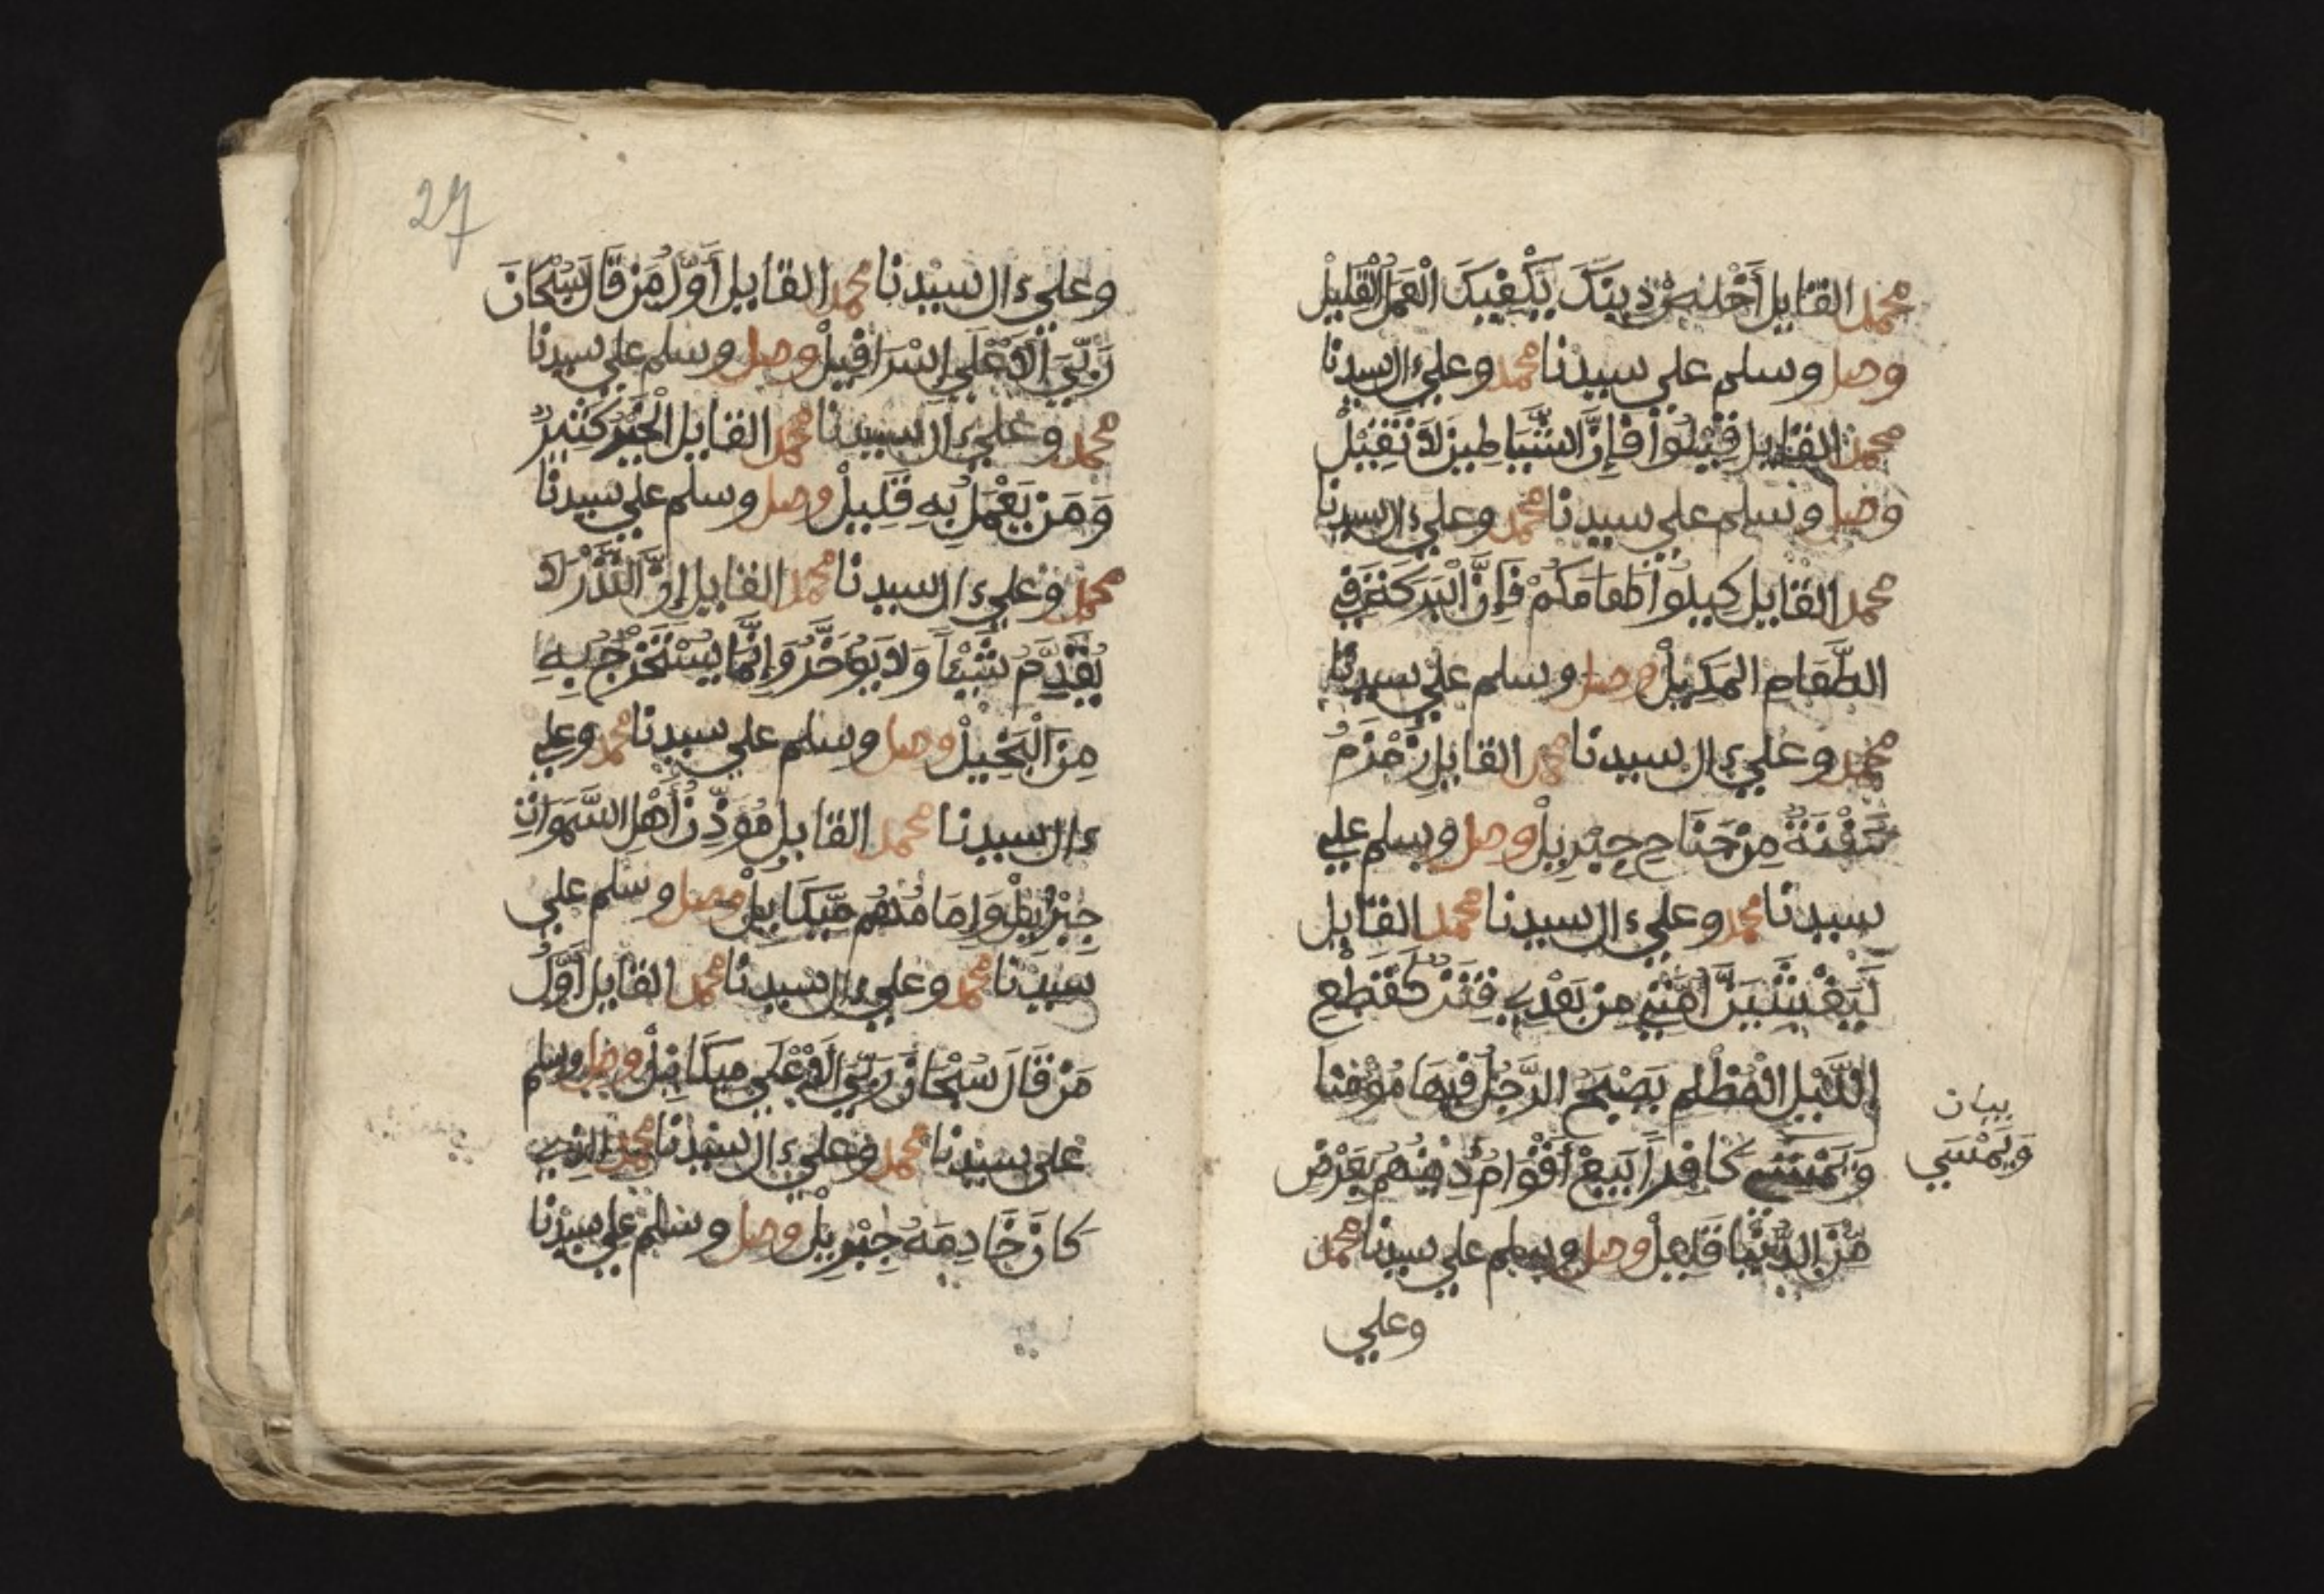 محمد القايل أخلص دينك يكفيك العمل القليل
وصل وسلم علي سيدنا محمد وعلي ءال سيدنا
محمد القايل قيلوا فإن الشياطين لا تقيل
وصل وسلم علي سيدنا محمد وعلي ءال سيدنا
محمد القايل كيلوا طعامكم فإن البركة في
الطعام المكيل وصل وسلم علي سيدنا
محمد وعلي ءال سيدنا محمد القايل زمزم
من جناح جبريل وصل وسلم علي
سيدنا محمد وعلي ءال سيدنا محمد القايل
ليغشين أمتي من بعدي فتن كقطع
الليل المظلم يصبح الرجل فيها مؤمنا
ويمسي كافرا يبيع أقوام دينهم بعرض
من الدنيا قليل وصل وسلم علي سيدنا محمد
بيان
ويمسي
وعلي
27
وعلي ءال سيدنا محمد القايل أول من قال سبحان
ربي الاعلي إسرافيل وصل وسلم علي سيدنا
محمد وعلي ءال سيدنا محمد القايل الخير كثير
ومن يعمل به قليل وصل وسلم علي سيدنا
محمد وعلي ءال سيدنا محمد القايل إن النذر لا
يقدم شيئا ولا يؤخر وإنما يستخرج به
من البخيل وصل وسلم علي سيدنا محمد وعلي
ءال سيدنا محمد القايل مؤذن أهل السموات
جبريل وإمامهم ميكاييل وصل وسلم علي
سيدنا محمد وعلي ءال سيدنا محمد القايل أول
من قال سبحان ربي الاعلي ميكاييل وصل وسلم
علي سيدنا محمد وعلي ءال سيدنا محمد الذي
كان خادمه جبريل وصل وسلم علي سيدنا